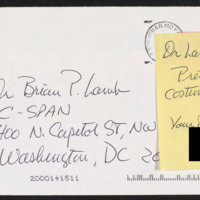 Dr Brian P. Lamb
C-SPAN
400 N. Capitol ST, NW
Washington, DC 20
20001+1511
Dr La
Pre
Costum
Your